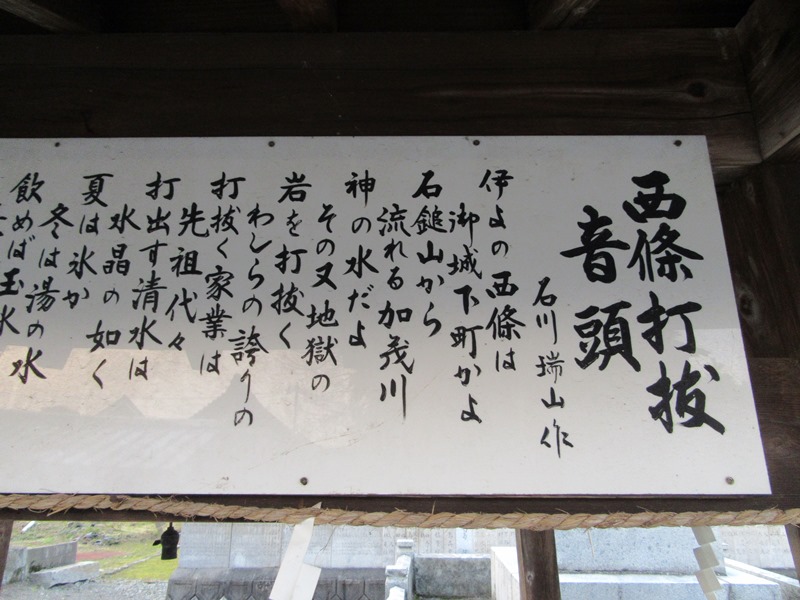 西條打抜
音頭
石川瑞山作
伊よの西條は
御城下町かよ
石鎚山から
流れる加茂川
神の水だよ
その又地獄の
岩を打抜く
わしらの誇りの
打抜く家業は
先祖代々
打出す清水は
水晶の如く
夏は氷か
冬は湯の水
飲めば玉水